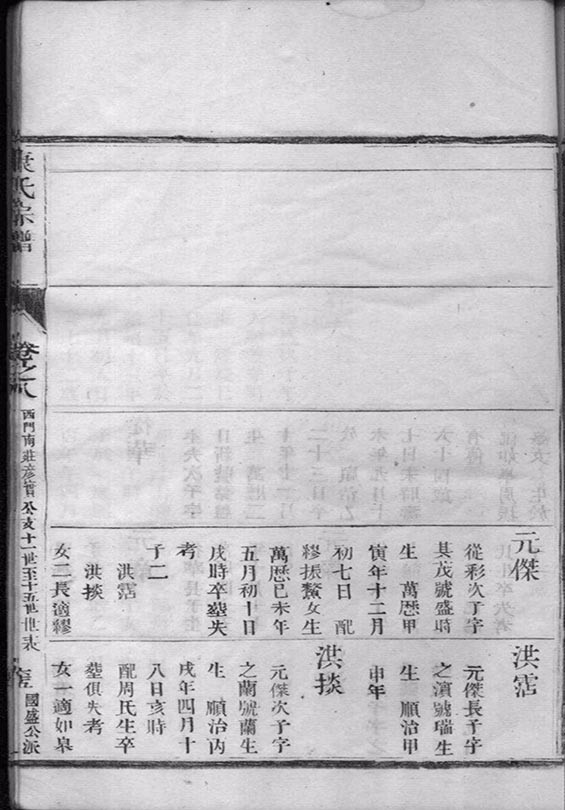 元傑
從彩次子字
其茂號盛時
生 萬厯甲
寅年十二月
初七日 配
繆振鰲女生
萬厯己未年
五月初十日
戌時卒塟失
考
子二
洪霑
洪掞
女二長適繆
洪霑
元傑長子字
之濵號瑞生
生 順治甲
申年
洪掞
元傑次子字
之蘭號蘭生
生 順治丙
戌年四月十
八日亥時
配周氏生卒
塟俱失考
女一適如皋
氏宗譜
卷之八
西門南莊彦實公支十一世至十五世世表
國盛公派